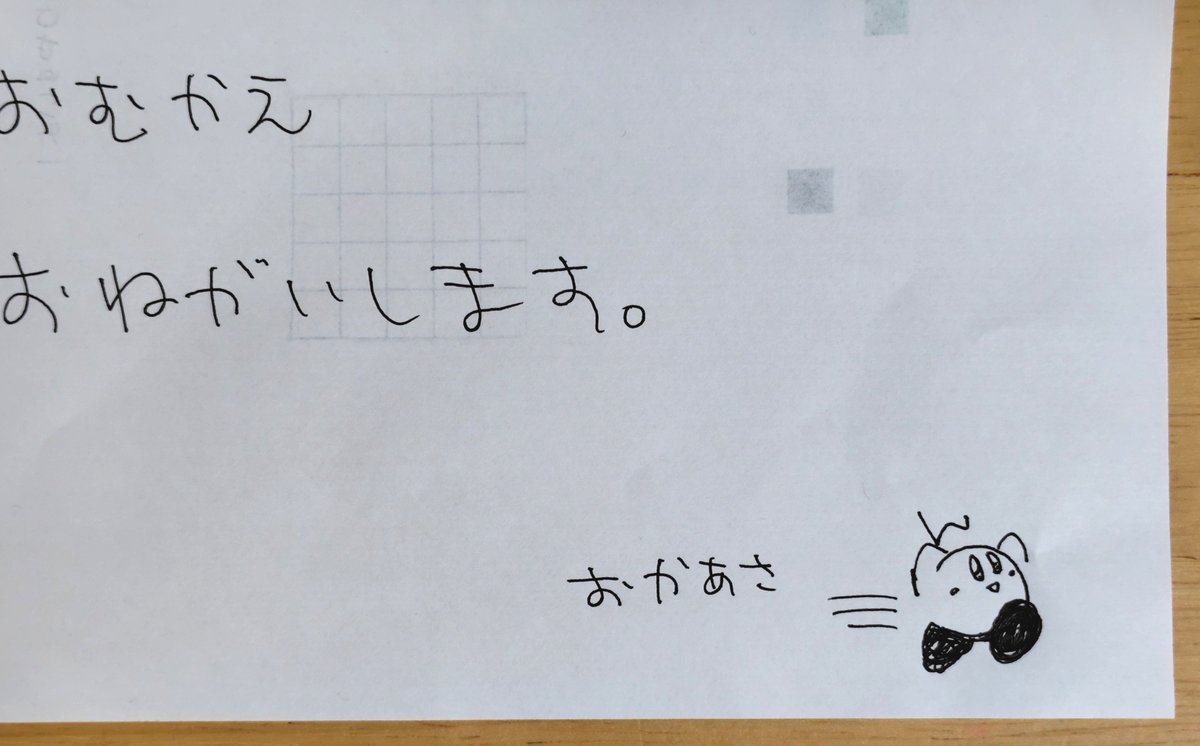 おむかえ
おねがいします。
おかあさ